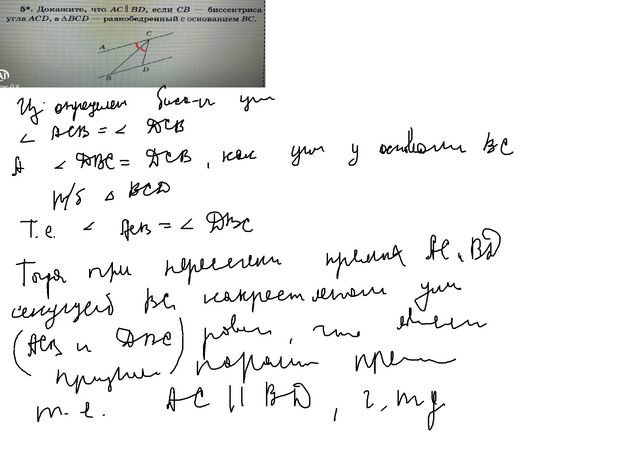 5*. Докажите, что AC ∥ BD, если CB — биссектриса
угла ACD, а △BCD — равнобедренный с основанием BC.
C
A
D
B
Из определен бисс-и угл
∠ ACB = ∠ DCB
А ∠ DBC = DCB, как угл у основани BC
р/б △ BCD
Т.е. ∠ ACB = ∠ DBC
Тогда при пересечени прямых AC, BD
секущей BC накрест лежащ угл
(ACB и DBC) равн, что
признак парал прям
т.е. AC || BD, ч.тд